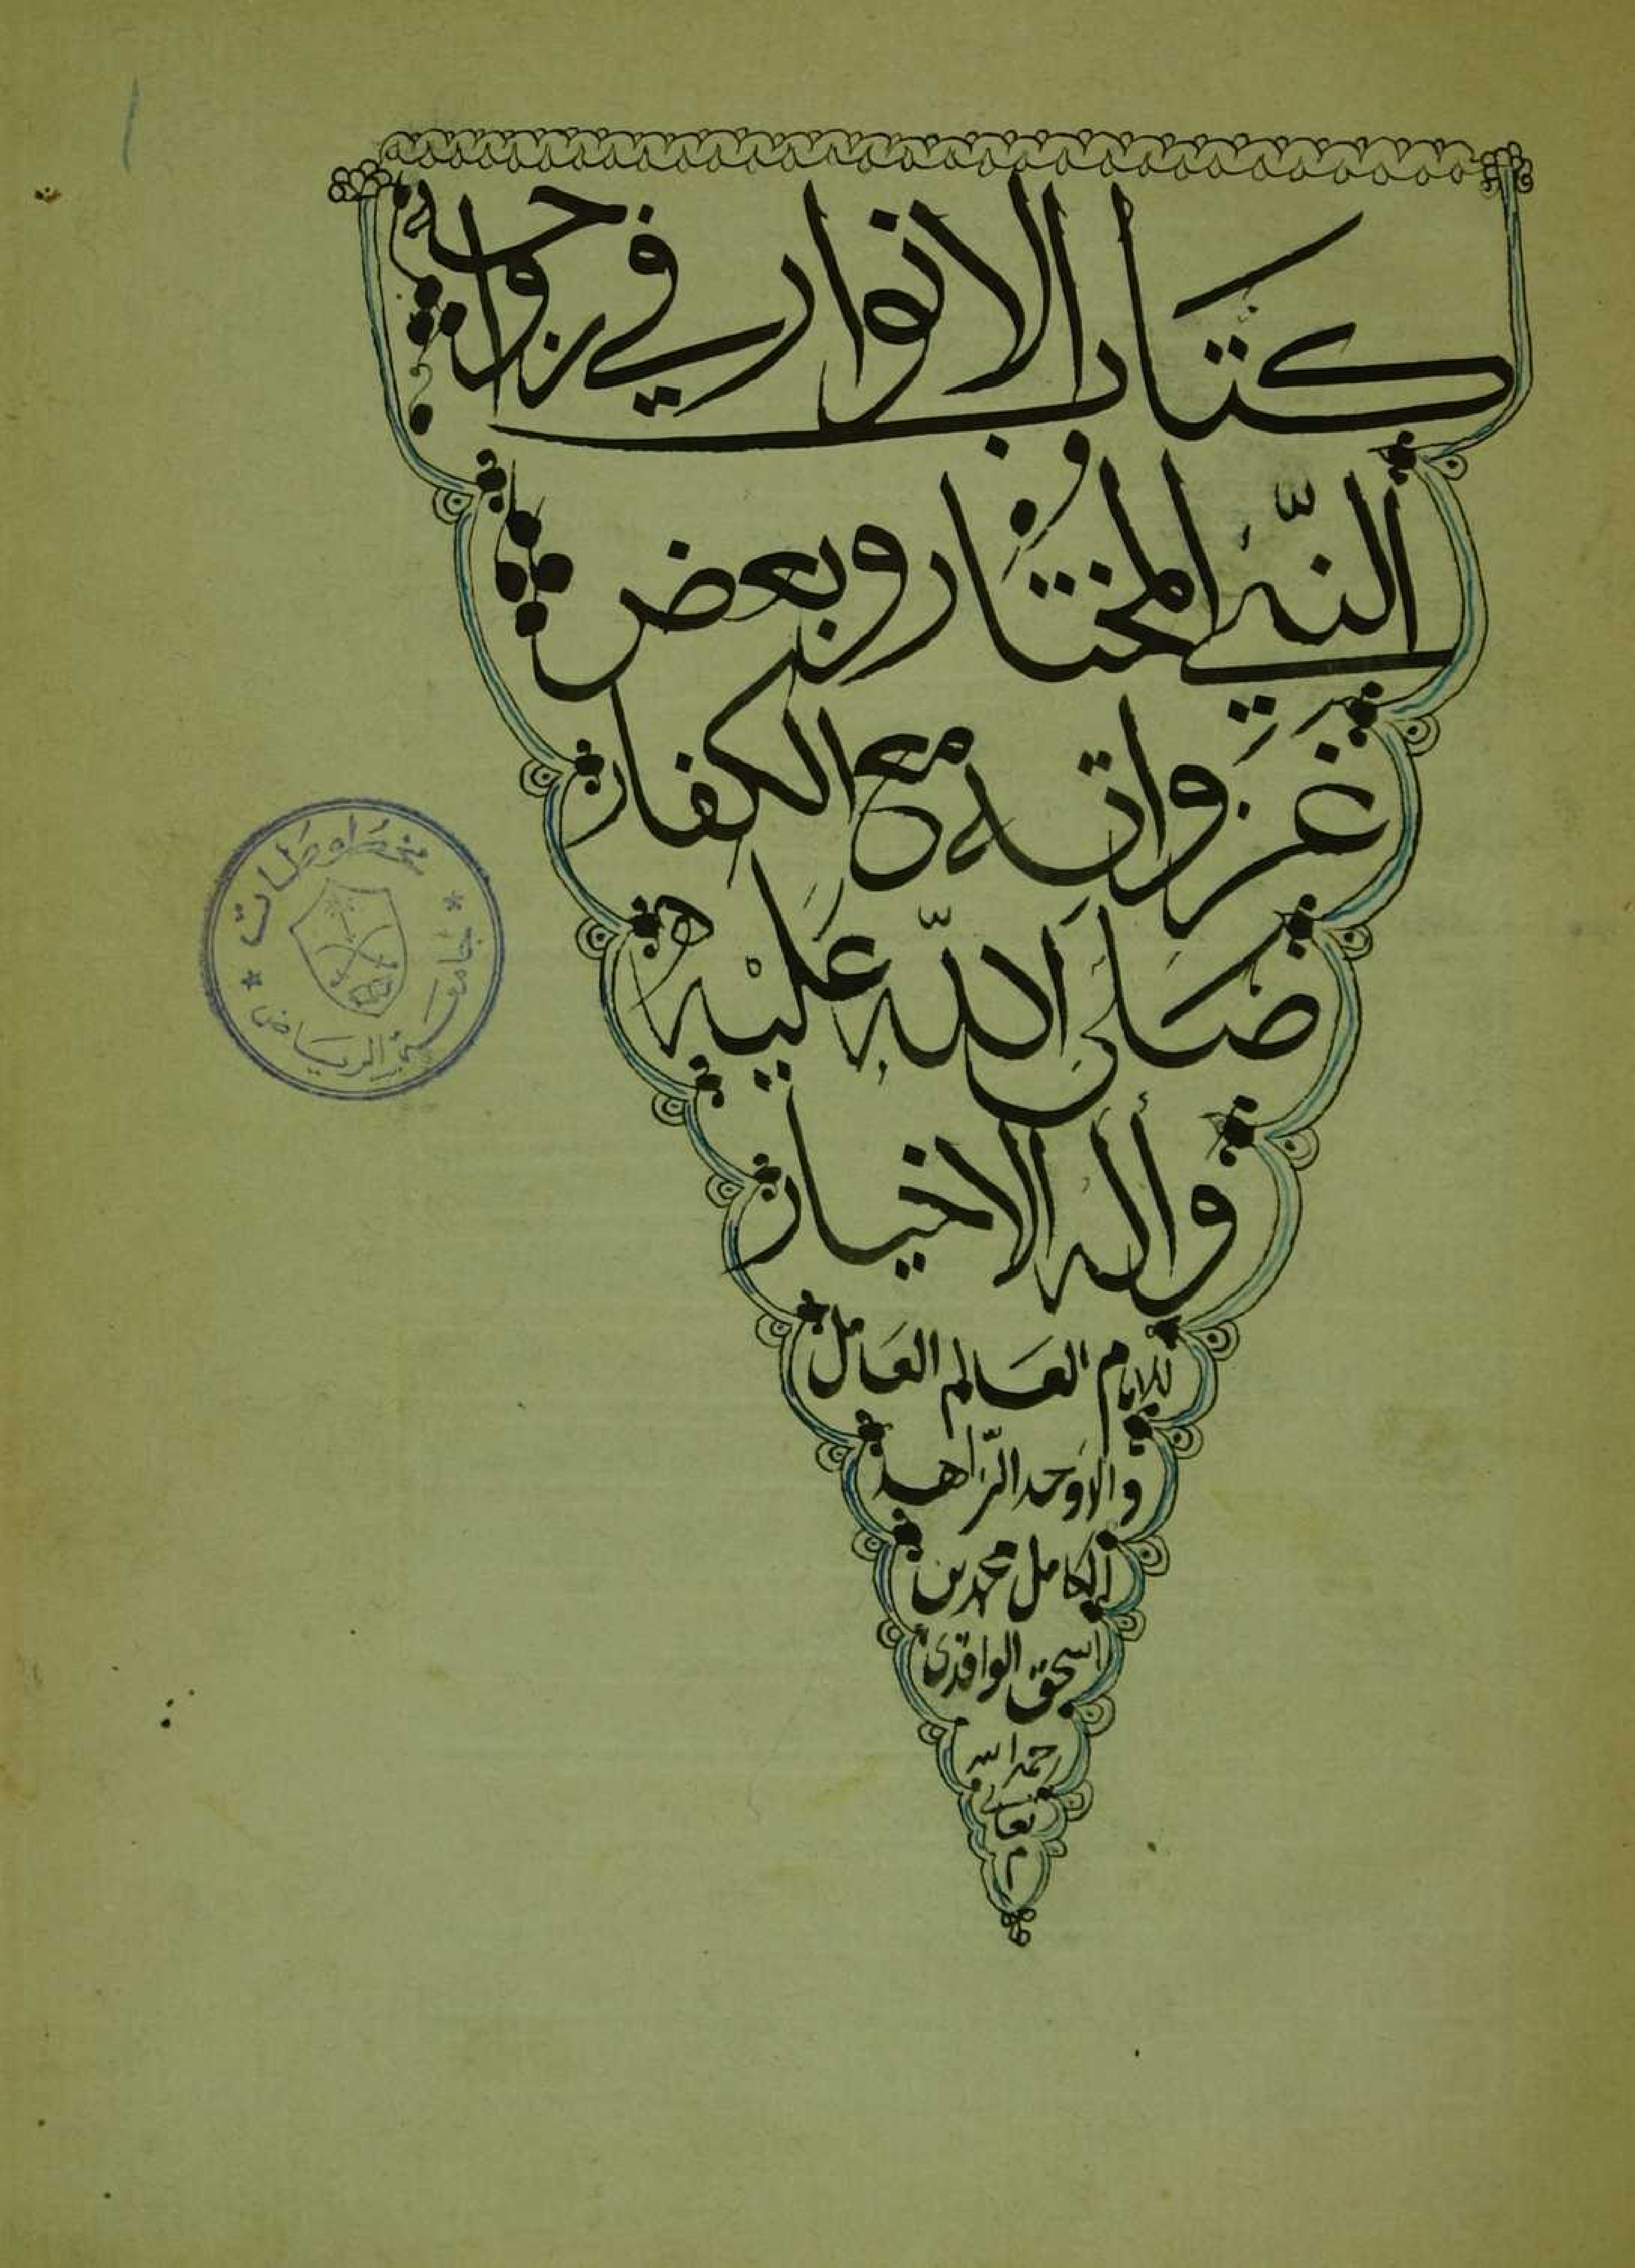 كتاب الانوار في زواج
النبي المختار وبعض
غزواته مع الكفار
صلى الله عليه
وأله الاخيار
للامام العالم العامل
والاوحد الزاهد
الكامل محمد بن
اسحق الواقدي
رحمه الله
تعالى
م
مخطوطات
جامعة الرياض